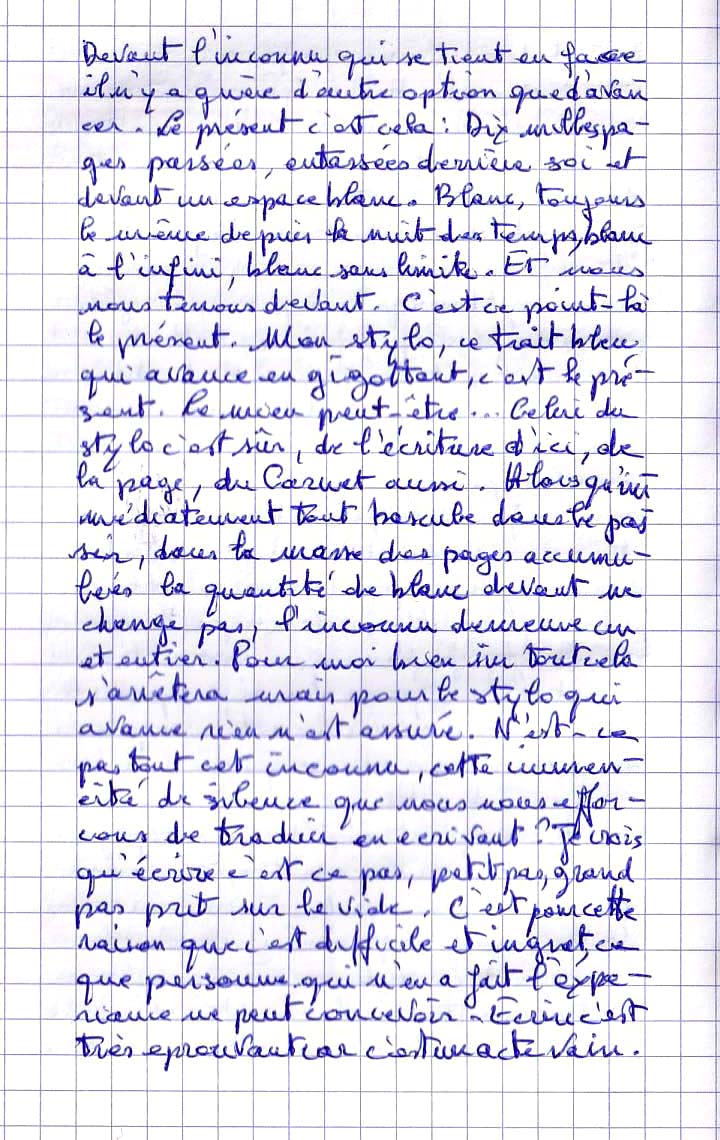 Devant l'inconnu qui se tient en face
il n'y a guère d'autre option que d'avan
cer. Le présent c'est cela : Dix mille pa-
ges passées, entassées derrière soi et
devant un espace blanc. Blanc, toujours
le même depuis la nuit des temps, blanc
à l'infini, blanc sans limite. Et nous
nous tenons devant. C'est ce point-là
le présent. Mon stylo, ce trait bleu
qui avance en gigottant, c'est le pré-
sent. Le mien peut-être... Celui du
stylo c'est sûr, de l'écriture d'ici, de
la page, du Carnet aussi. Alors qu'im
médiatement tout bascule dans le pas
sé, dans la masse des pages accumu-
lées la quantité de blanc devant ne
change pas, l'inconnu demeure un
et entier. Pour moi bien sûr tout cela
s'arrêtera mais pour le stylo qui
avance rien n'est assuré. N'est-ce
pas tout cet inconnu, cette immen-
sité de silence que nous nous effor-
cons de traduire en ecrivant ? Je crois
qu'écrire c'est ce pas, petit pas, grand
pas prit sur le vide. C'est pour cette
raison que c'est difficile et ingrat, ce
que personne qui n'en a fait l'expe-
rience ne peut concevoir - Ecrire c'est
très eprouvant car c'est un acte vain.